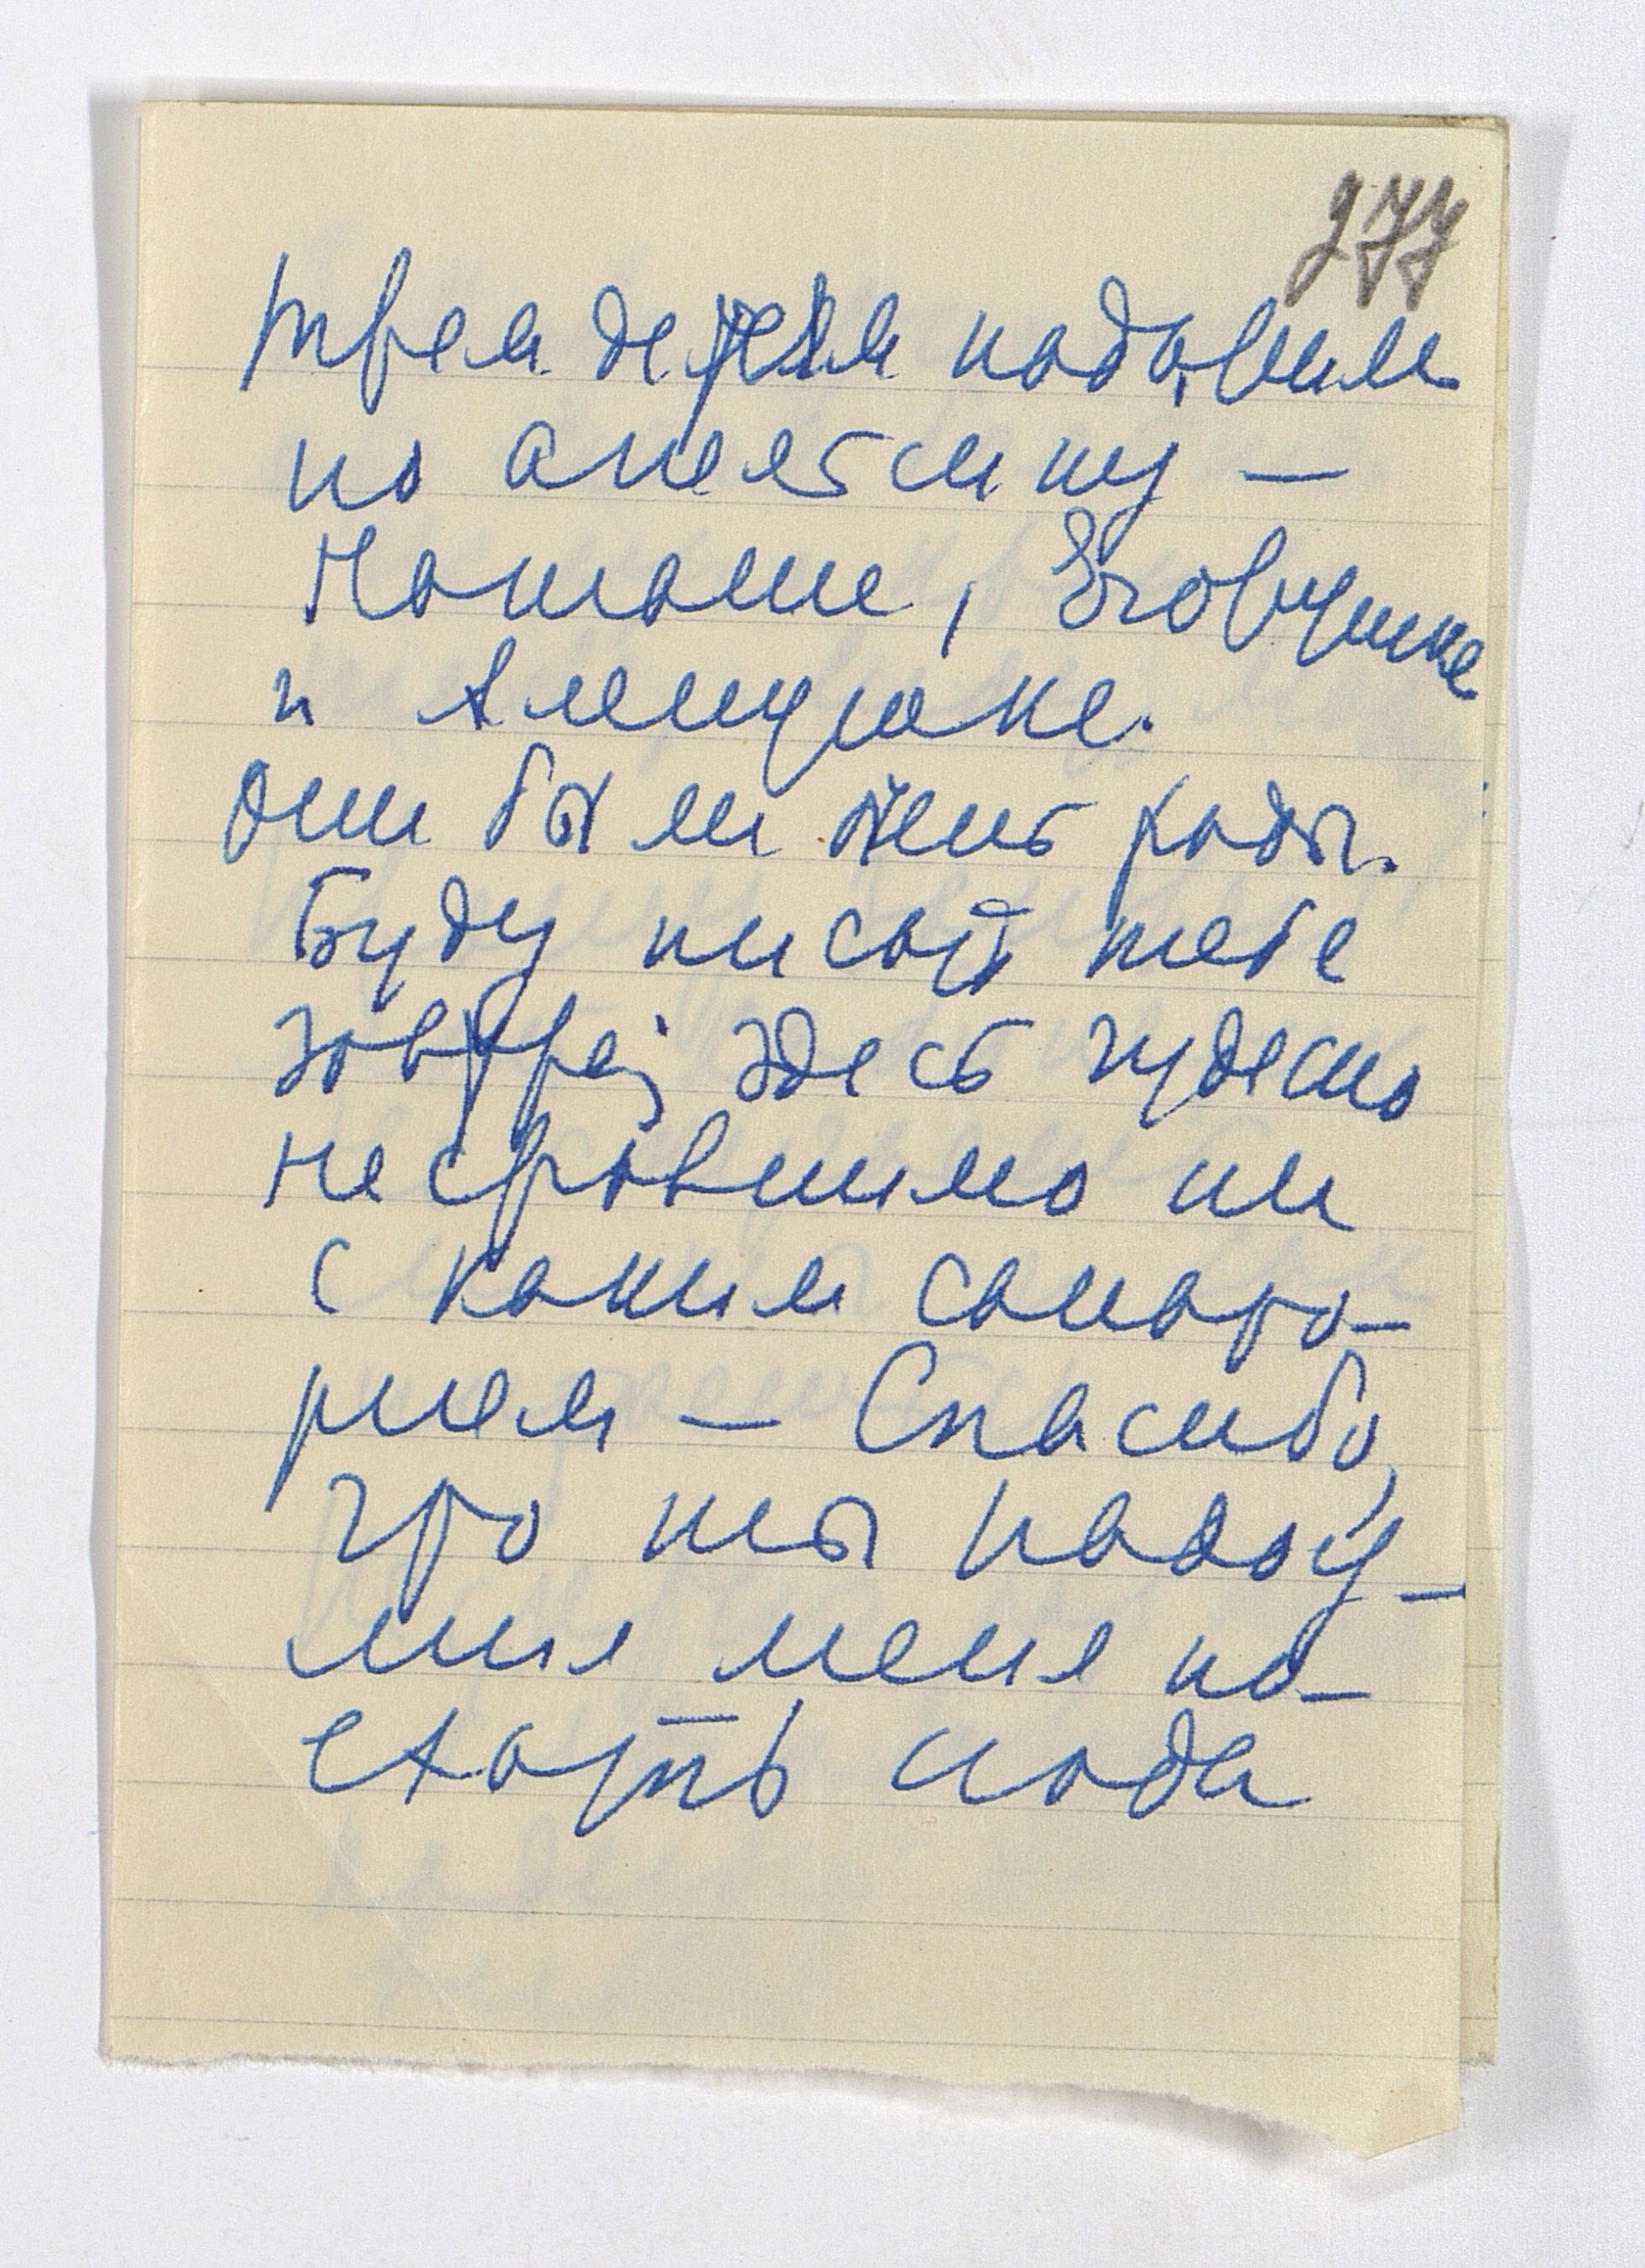 277
трем детям подарили
по апельсину —
Наташе, Егорушке
и Аленушке.
Они были очень рады.
Буду писать тебе
завтра; здесь чудесно
несравнимо ни
с каким санато-
рием — Спасибо,
что ты надоу-
мил меня по-
ехать сюда